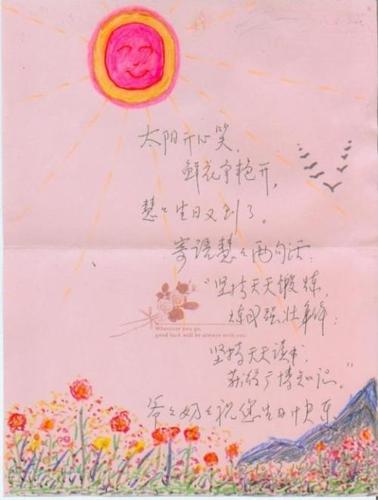 太阳开心笑,
鲜花争艳开,
慧慧生日又到了。
寄语慧慧两句话:
"坚持天天锻炼,
炼成强壮身体;
坚持天天读书
获得广博知识。"
Wherever you go,
good luck will be always with you.
爷爷奶奶祝您生日快乐